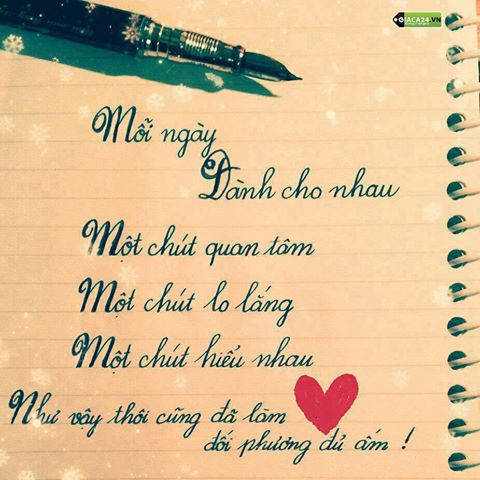 GIACA24.VN
Mỗi ngày
Dành cho nhau
Một chút quan tâm
Một chút lo lắng
Một chút hiểu nhau
Như vậy thôi cũng đã làm
đối phương đủ ấm !